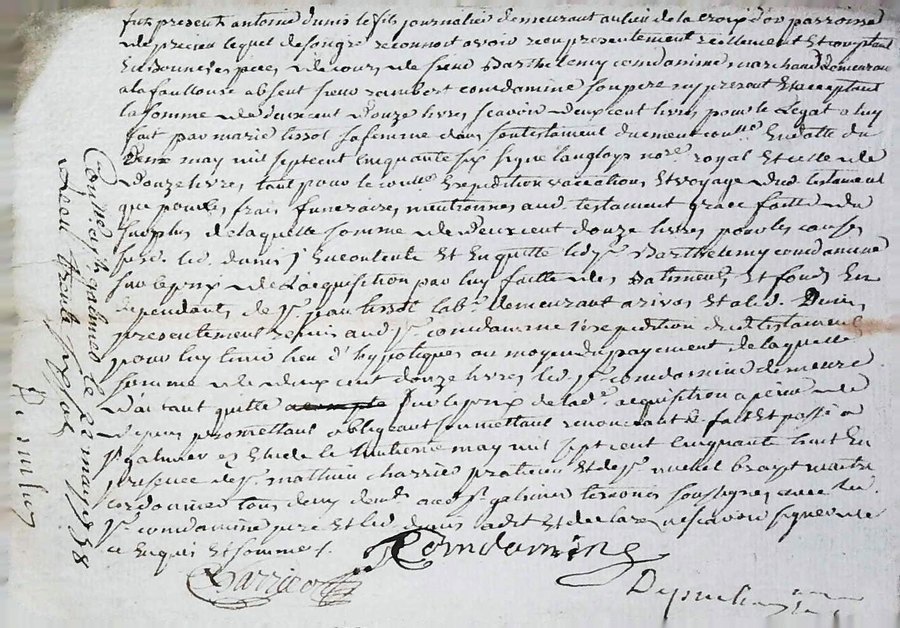 fut present antoine dunis le fils journalier demeurant au lieu de la croix d'or parroisse
de precieu lequel de son gre reconnoit avoir reçu presentement reellement et comptant
en bonnes especes de cours de sieur Barthelemy condamine marchand demeurant
a la faullouse absent sieur rambert condamine son pere icy present et acceptant
la somme de deux cent douze livres scavoir deux cent livres pour le legat a luy
fait par marie tissot sa femme dans son testament en datte du
deux may mil sept cent cinquante six signé langloys no.re royal et celle de
douze livres tant pour le expedition vacations et voyage dud. testament
que pour les frais funeraires mentionnes aud. testament grace faitte du
surplus de laquelle somme de deux cent douze livres pour les causes
led. dunis s'en contente et en quitte led. s.r Barthelemy condamine
sur le prix de l'acquisition par luy faitte des batiments et fonds en
dependants de s.r jean tissot lab.r demeurant a rivas et a led. Dunis
presentement remis aud. s.r condamine l'expedition dud. testament
pour luy tenir lieu d'hypoteques au moyen du payement de laquelle
somme de deux cent douze livres led. s.r condamine demeure
d'autant quitte sur le prix de lad. acquisition a peine de
promettant obligeant soumettant renonceant &. fait et passé a
s.t galmier en etude le huitieme may mil sept cent cinquante huit en
presence de s.r mathieu charrier praticien et de s.r michel brayt maitre
cordonnier tous deux dem.t aud. s.t galmier temoins soussignes avec led.
s.r condamine pere et led. dunis a dit et declare ne scavoir signer de
ce enquis et sommé /.
Condamine
Charrier
Depuchau
Controllé a s.t galmier le 22 may 1758
Reçu trente six sols